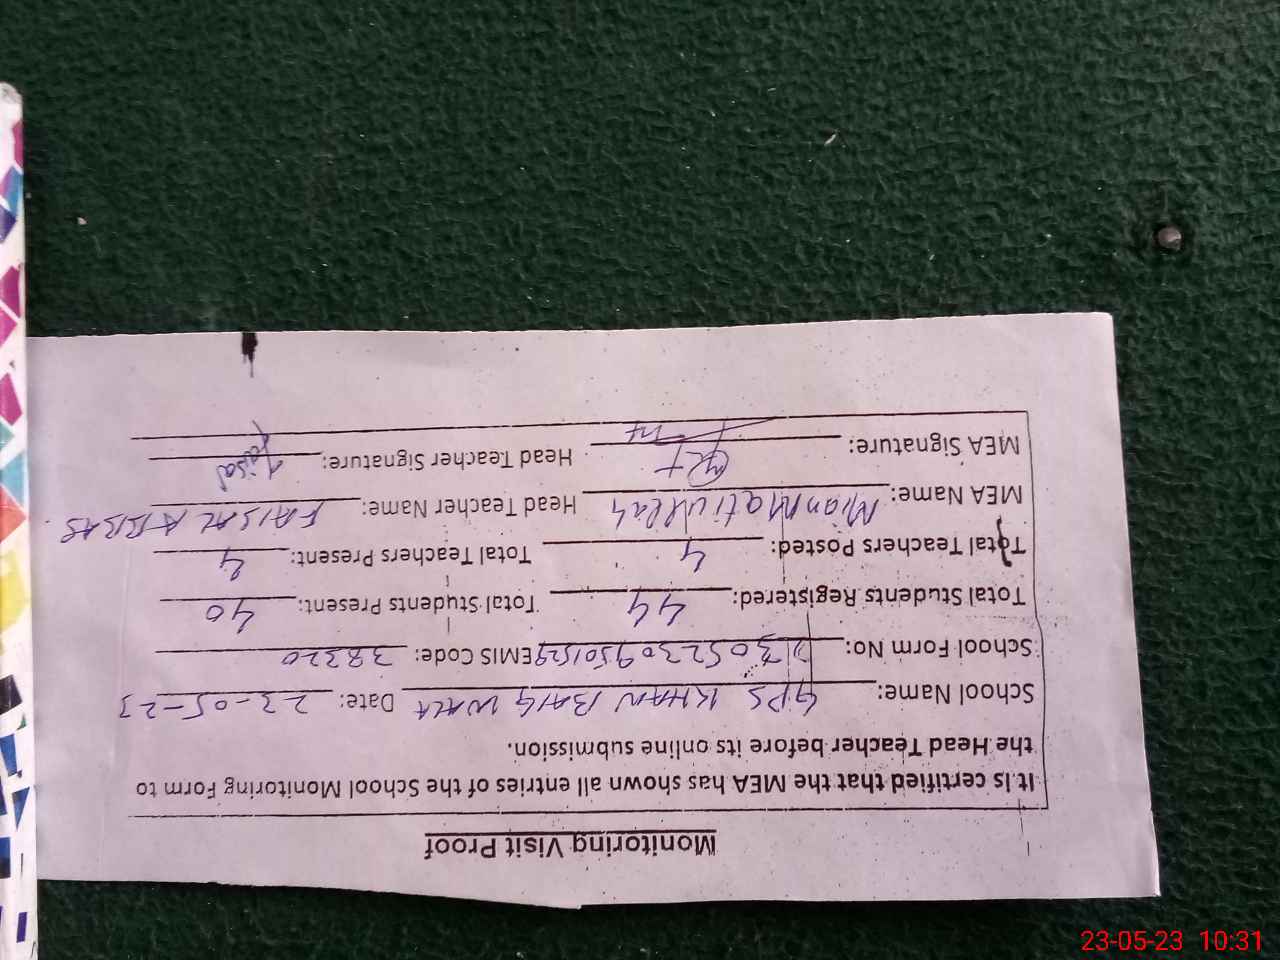 Monitoring Visit Proof
It Is certified that the MEA has shown all entries of the School Monitoring Form to
the Head Teacher before its online submission.
School Name: GPS KHAN BAIG WALA Date: 23-05-23
School Form No: 23052309501529 EMIS Code: 38320
Total Students Registered: 44 Total Students Present: 40
Total Teachers Posted: 4 Total Teachers Present: 4
MEA Name: Mian Matiullah Head Teacher Name: FAISAL ABBAS
MEA Signature: Head Teacher Signature: Faisal
23-05-23 10:31